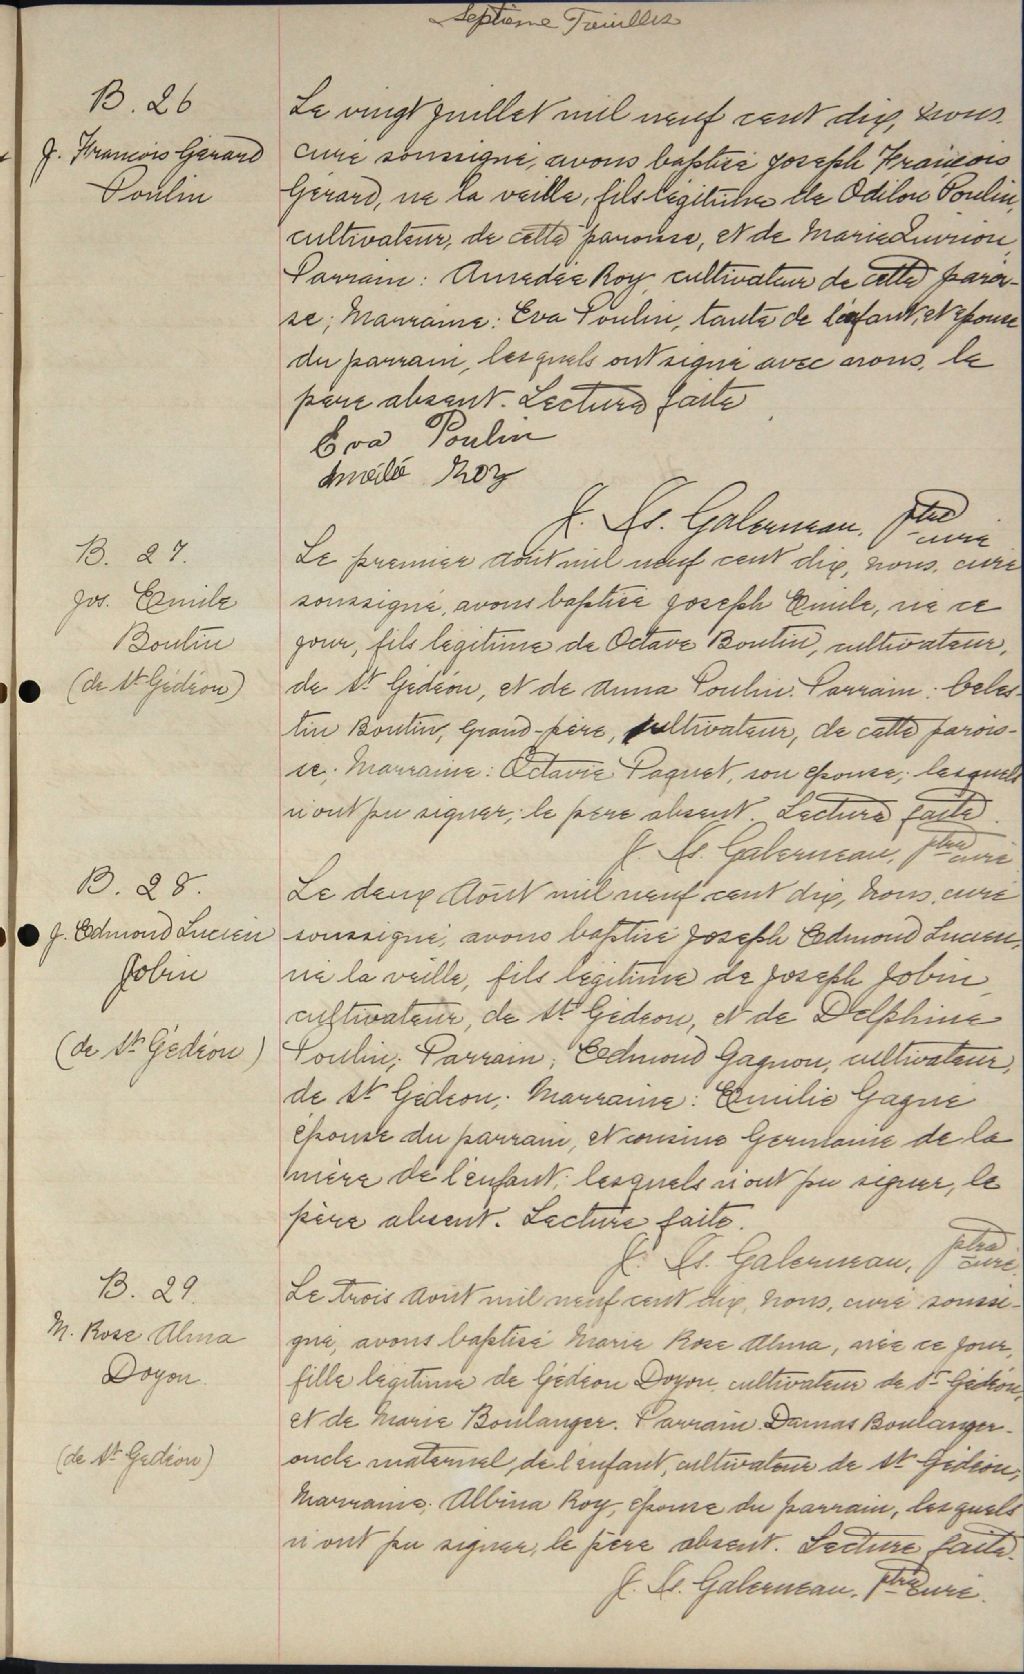 Septième Feuillet
B. 26
J. François Gérard
Poulin
Le vingt juillet mil neuf cent dix, nous,
curé soussigné, avons baptisé Joseph François
Gérard, né la veille, fils légitime de Odilon Poulin,
cultivateur, de cette paroisse, et de Marie Quirion,
Parrain: Amedée Roy, cultivateur de cette parois-
se; Marraine: Eva Poulin, tante de l'enfant, et épouse
du parrain, lesquels ont signé avec nous, le
père absent. Lecture faite
Eva Poulin
Amédé Roy
J. Ls. Galerneau, ptre
curé
B. 27.
Jos. Emile
Boutin
(de St Gédéon)
Le premier août mil neuf cent dix, nous, curé
soussigné, avons baptisé Joseph Emile, né ce
jour, fils légitime de Octave Boutin, cultivateur,
de St Gédéon, et de Anna Poulin. Parrain: Celes-
tin Boutin, grand-père, cultivateur, de cette parois-
se; Marraine: Octavie Paquet, son épouse; lesquels
n'ont pu signer; le père absent. Lecture faite.
J. Ls. Galerneau, ptre
curé
B. 28.
J. Edmond Lucien
Jobin
(de St Gédéon)
Le deux Août mil neuf cent dix, nous, curé
soussigné, avons baptisé Joseph Edmond Lucien,
né la veille, fils légitime de Joseph Jobin,
cultivateur, de St Gédéon, et de Delphine
Poulin; Parrain; Edmond Gagnon, cultivateur,
de St Gédeon; Marraine: Emilie Gagné
épouse du parrain, et cousine Germaine de la
mère de l'enfant; lesquels n'ont pu signer, le
père absent. Lecture faite.
J. Ls. Galerneau, ptre
curé.
B. 29.
M. Rose Alma
Doyon.
(de St Gedéon)
Le trois Août mil neuf cent dix, nous, curé soussi-
gné, avons baptisé Marie Rose Alma, née ce jour,
fille légitime de Gédéon Doyon, cultivateur de St Gédéon,
et de Marie Boulanger. Parrain Damas Boulanger
oncle maternel de l'enfant, cultivateur de St Gédéon;
Marraine; Albina Roy, épouse du parrain, lesquels
n'ont pu signer, le père absent. Lecture faite.
J. Ls. Galerneau, ptre curé.